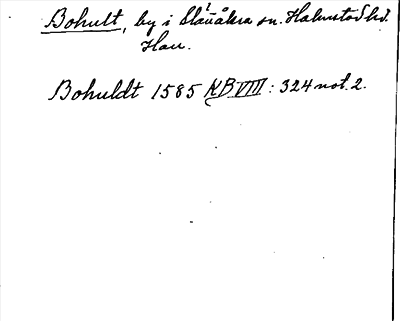 Bohult, by i Slättåkra sn. Halmstad hd.
Hall.
Bohuldt 1585 KB VIII: 324 not. 2.